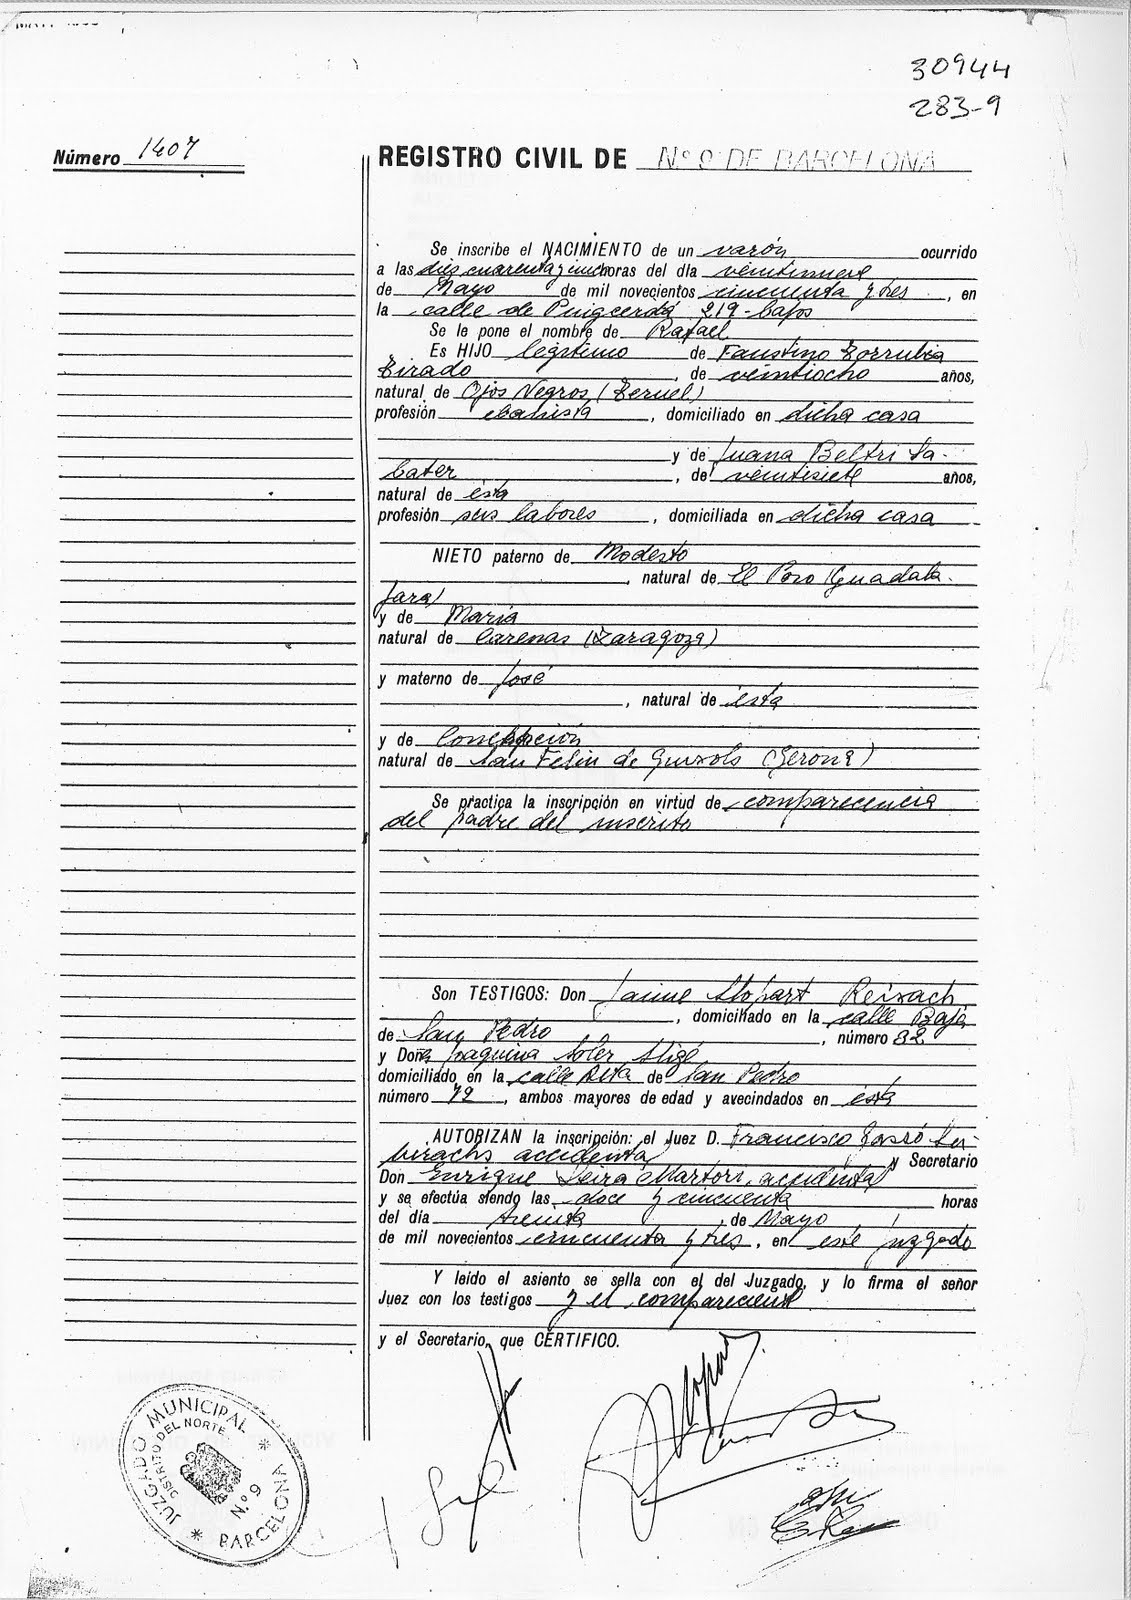 30944
283-9
Número 1407
REGISTRO CIVIL DE Nº 9 DE BARCELONA
Se inscribe el NACIMIENTO de un varón ocurrido
a las diez cuarenta y cinco horas del día veintinueve
de Mayo de mil novecientos cincuenta y tres, en
la calle de Puigcerdá 219-bajos
Se le pone el nombre de Rafael
Es HIJO legítimo de Faustino Torrubia
Tirado, de veintiocho años,
natural de Ojos Negros (Teruel)
profesión ebanista, domiciliado en dicha casa
y de Juana Beltri Sa-
bater, de veintisiete años,
natural de ésta
profesión sus labores, domiciliada en dicha casa
NIETO paterno de Modesto
, natural de El Pozo (Guadala-
jara)
y de María
natural de Carenas (Zaragoza)
y materno de José
, natural de ésta
y de Concepción
natural de San Feliu de Guixols (Gerona)
Se practica la inscripción en virtud de comparecencia
del padre del inscrito
Son TESTIGOS: Don Jaime Llopart Reixach
, domiciliado en la calle Baja
de San Pedro, número 32
y Doña Joaquina Soler
domiciliado en la calle Alta de San Pedro
número 72, ambos mayores de edad y avecindados en ésta
AUTORIZAN la inscripción: el Juez D. Francisco
accidental y Secretario
Don Enrique Martori, accidental
y se efectúa siendo las doce y cincuenta horas
del día treinta de Mayo
de mil novecientos cincuenta y tres, en este juzgado
Y leído el asiento se sella con el del Juzgado, y lo firma el señor
Juez con los testigos y el compareciente
y el Secretario, que CERTIFICO.
JUZGADO MUNICIPAL
DISTRITO DEL NORTE
N.º 9
* BARCELONA *